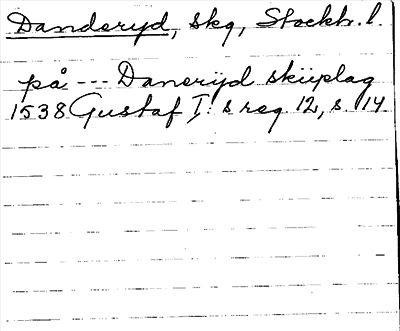 Danderyd, skg, Stockh. l.
på --- Daneryd skiiplag
1538 Gustaf I:s reg. 12, s. 14.